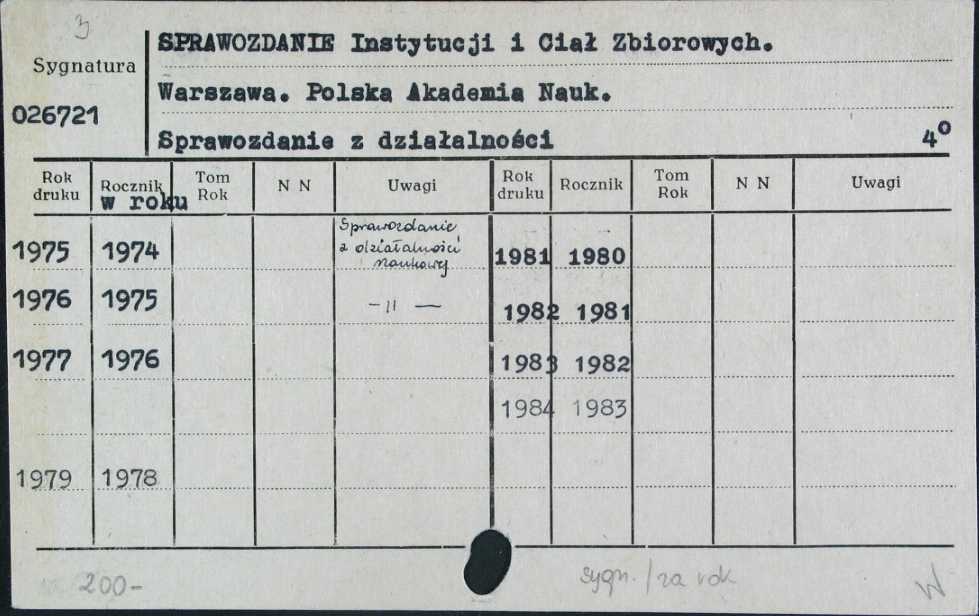 3
SPRAWOZDANIE Instytucji i Ciał Zbiorowych.
Sygnatura
Warszawa. Polska Akademia Nauk.
026721
Sprawozdanie z działalności 4°
Rok druku Rocznik w roku Tom Rok N N Uwagi Rok druku Rocznik Tom Rok N N Uwagi
1975 1974 Sprawozdanie z działalności naukowej 1981 1980
1976 1975 –〃— 1982 1981
1977 1976 1983 1982
1984 1983
1979 1978
200-
sygn. / za rok
W